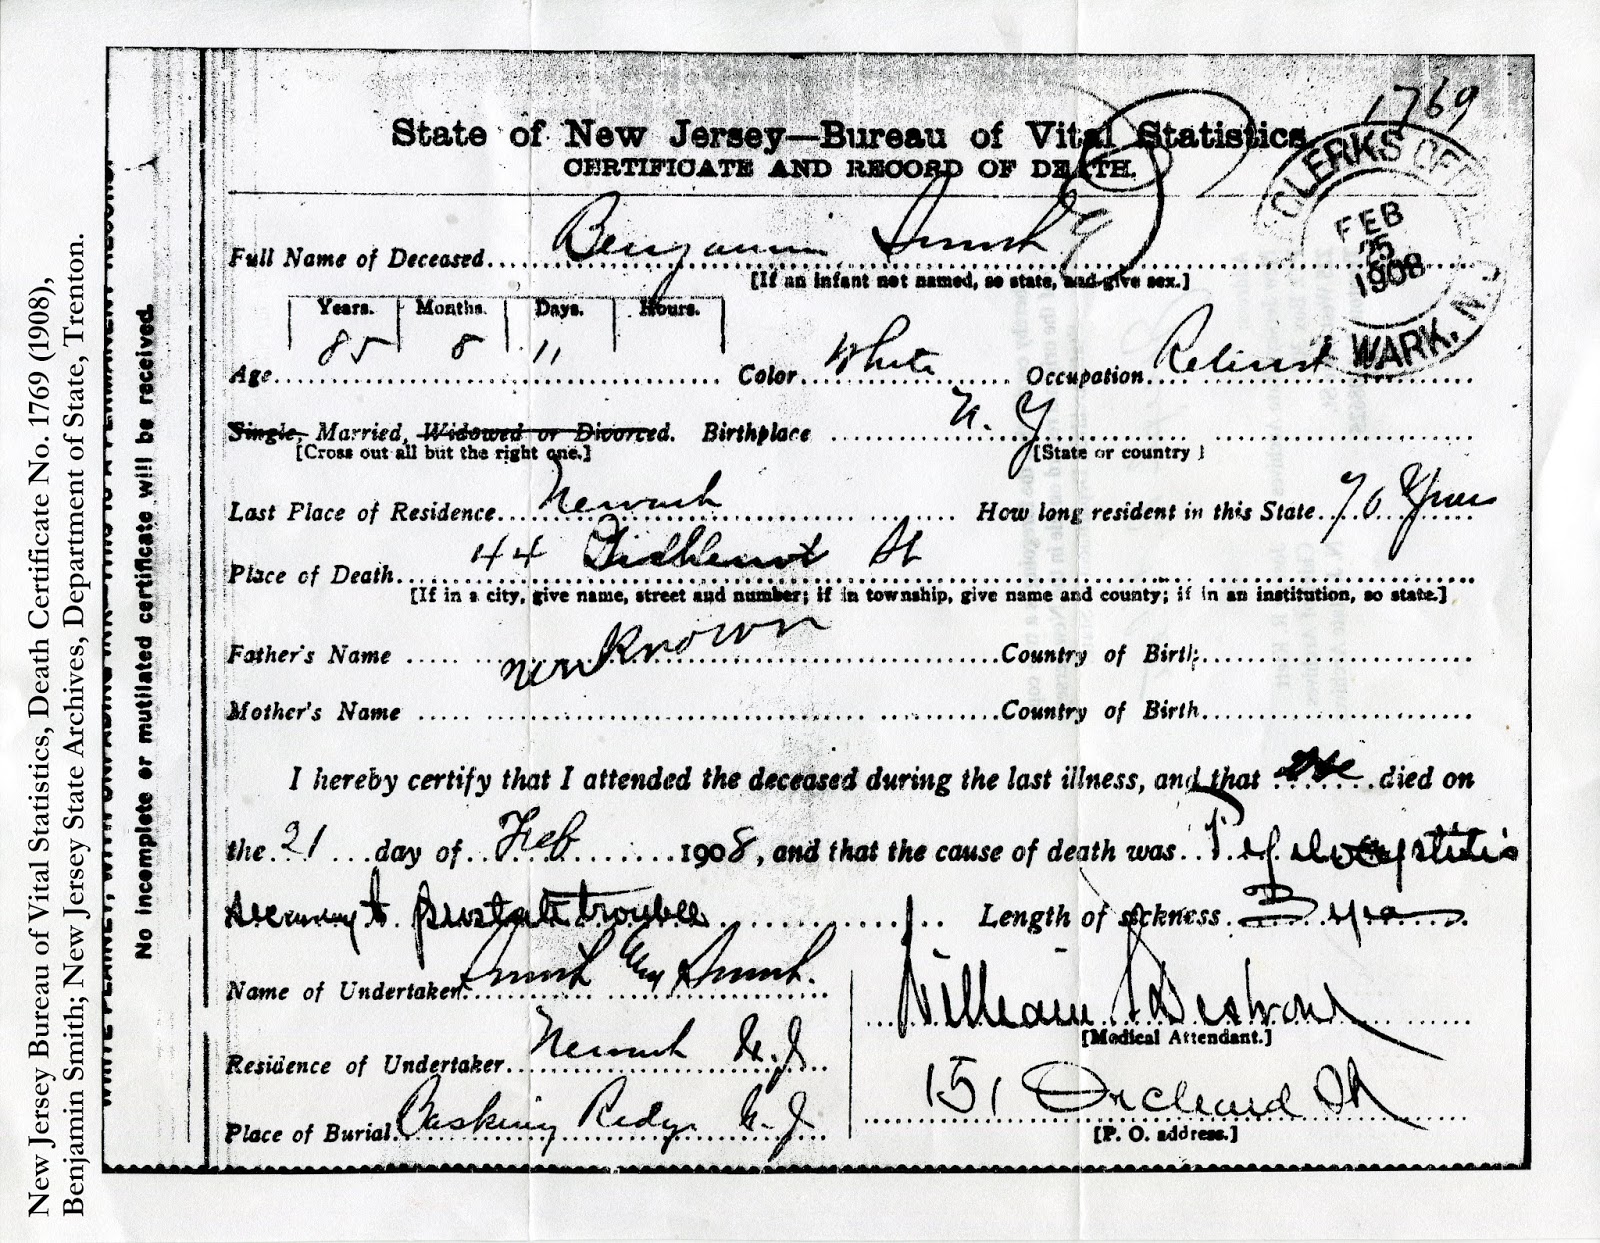 New Jersey Bureau of Vital Statistics, Death Certificate No. 1769 (1908),
Benjamin Smith; New Jersey State Archives, Department of State, Trenton.
No incomplete or mutilated certificate will be received.
1769
State of New Jersey—Bureau of Vital Statistics.
CERTIFICATE AND RECORD OF DEATH.
CLERKS
FEB
25
1908
WARK, N.J.
Full Name of Deceased Benjamin Smith
[If an infant not named, so state, and give sex.]
Years. Months. Days. Hours.
85 8 11
Age Color White Occupation Retired
Single, Married, Widowed or Divorced. Birthplace N. Y
[Cross out all but the right one.] [State or country]
Last Place of Residence Newark How long resident in this State 70 Years
Place of Death 44 St
[If in a city, give name, street and number; if in township, give name and county; if in an institution, so state.]
Father's Name unknown Country of Birth
Mother's Name Country of Birth
I hereby certify that I attended the deceased during the last illness, and that he died on
the 21 day of Feb 1908, and that the cause of death was
secondary to prostatic trouble Length of sickness
Name of Undertaker Smith & Smith.
Residence of Undertaker Newark N.J
William
[Medical Attendant.]
Place of Burial Basking Ridge N.J
151 Orchard St
[P. O. address.]